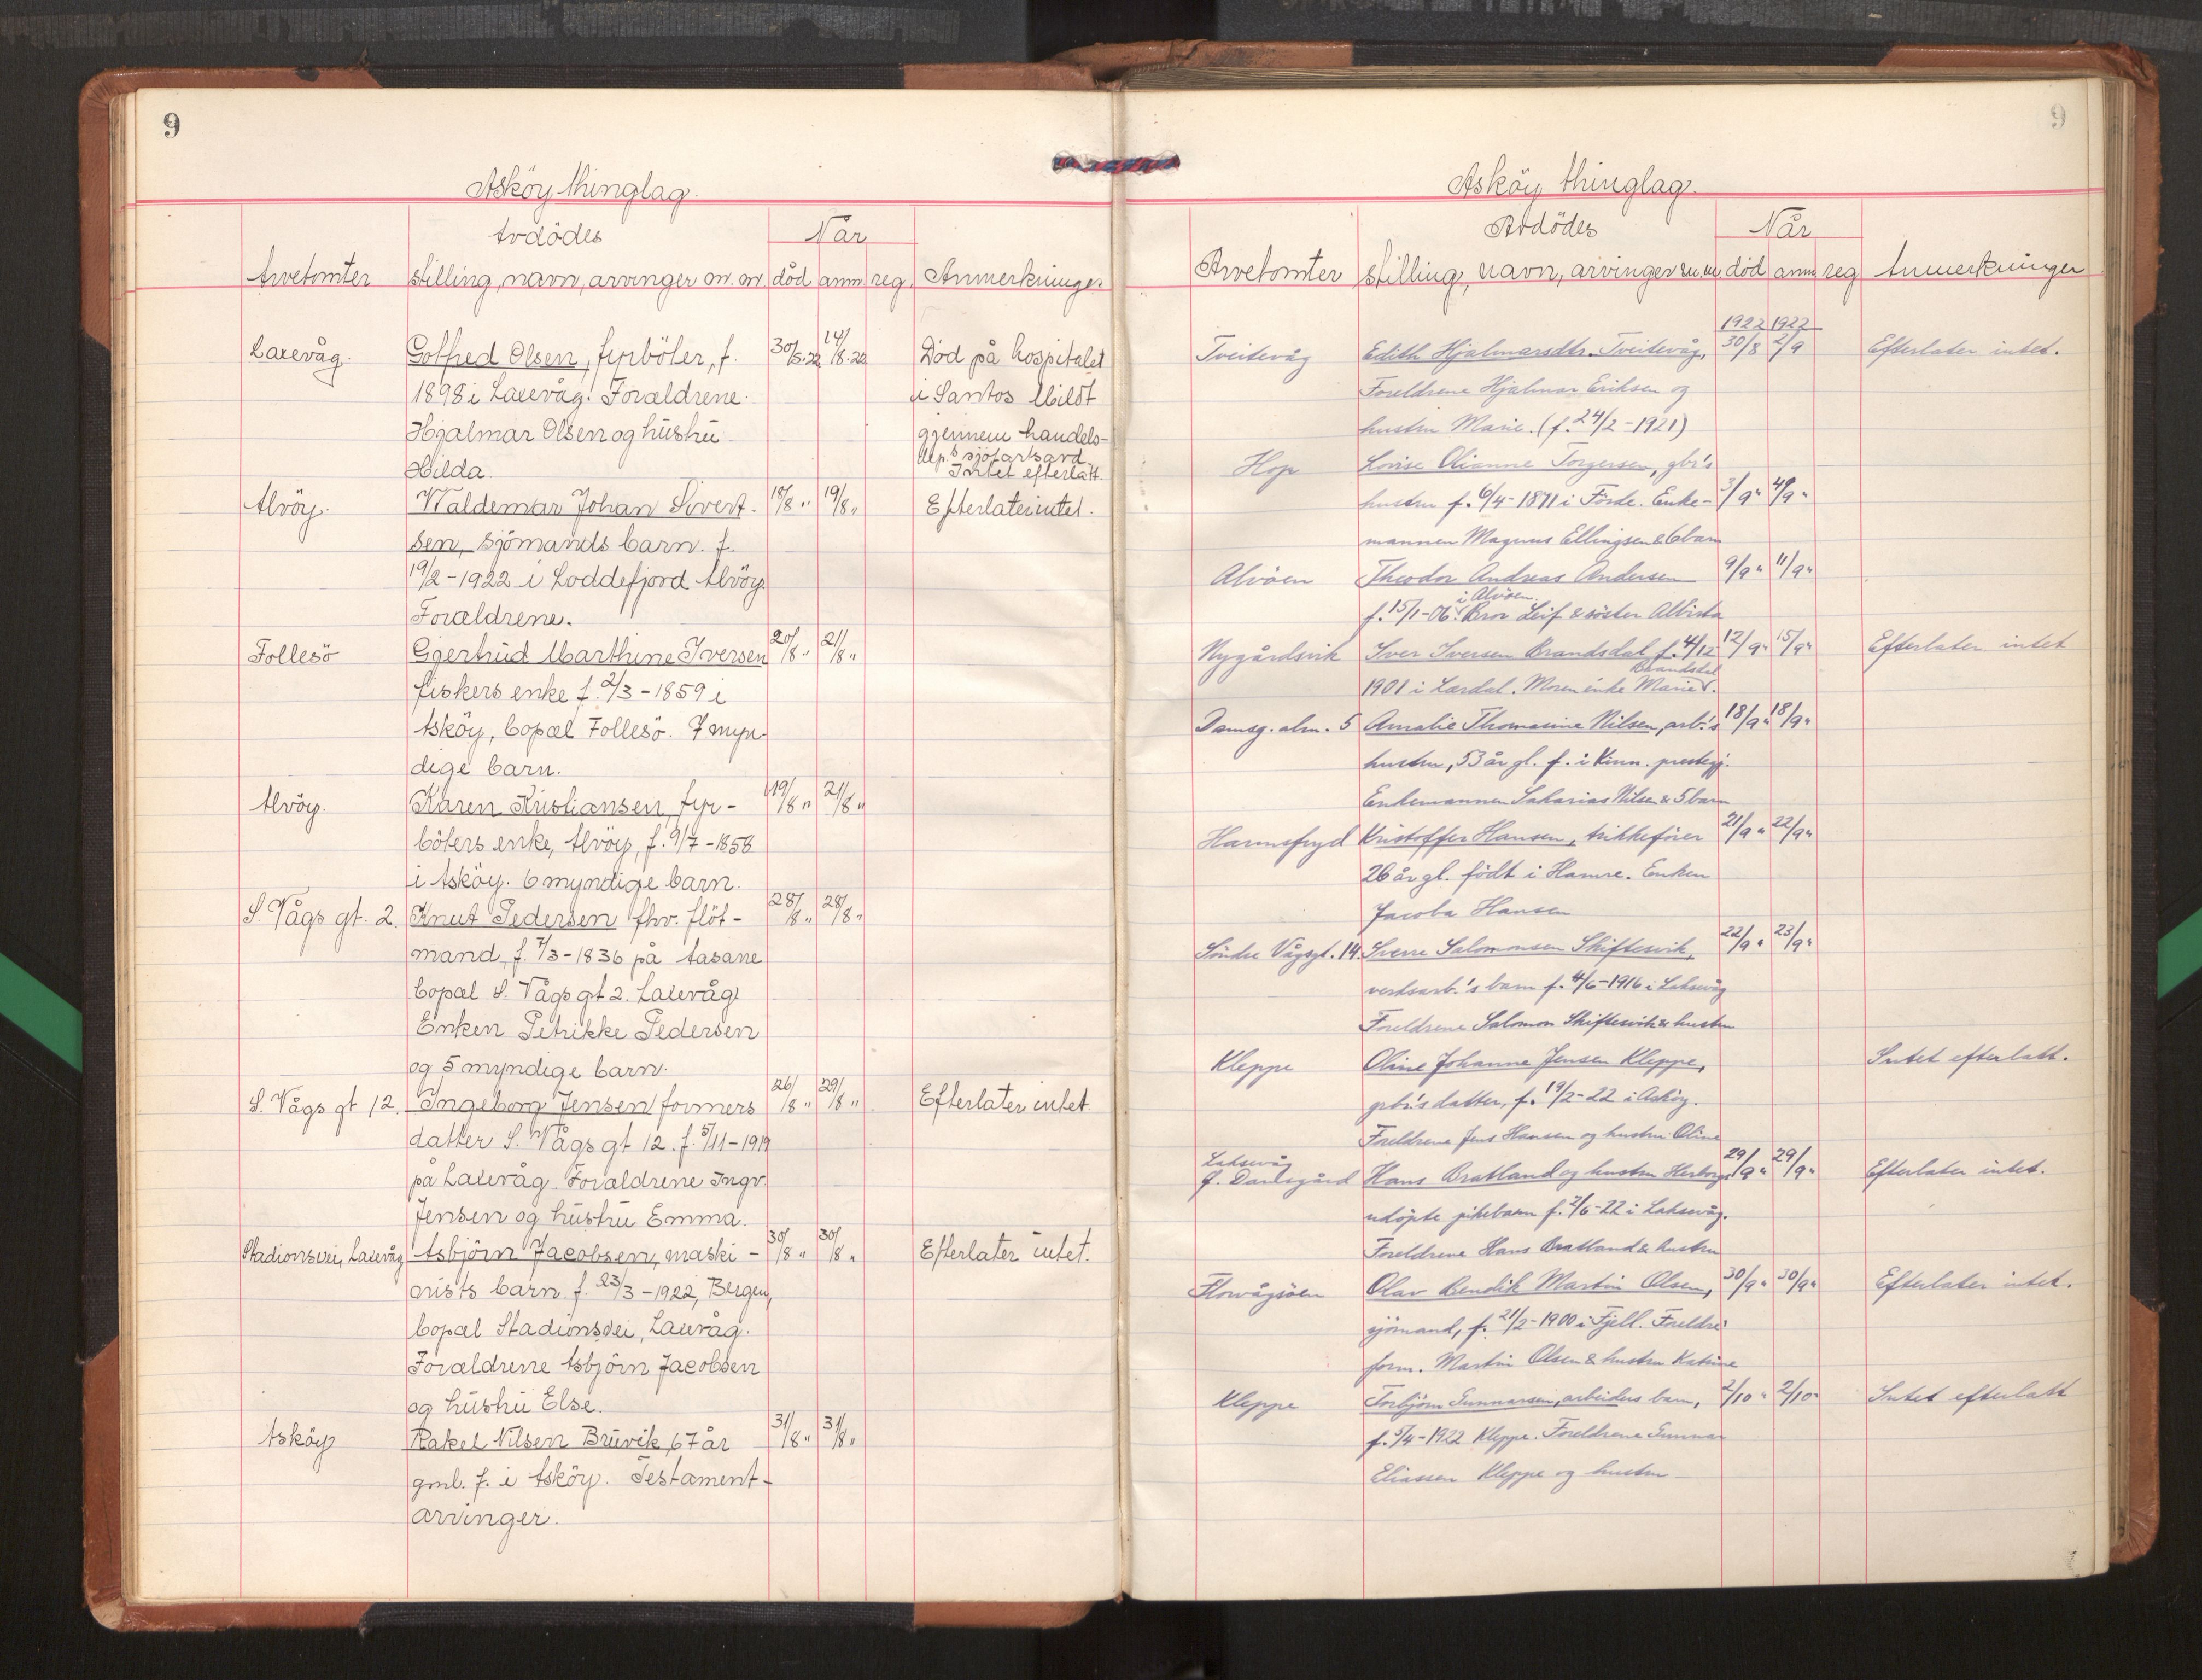 9
Asköy thinglag.
Avdödes
Når
Arvetomter stilling, navn, arvinger m. m. död anm reg. Anmerkninger
Laxevåg. Golfred Olsen, fyrböter, f. 30/5.22 14/8.22 Död på hospitalet
1898 i Laxevåg. Forældrene i Santos Mildt
Hjalmar Olsen og hustru gjennem handels-
Hilda. dep.s sjöfartsavd.
Intet efterlatt.
Alvöy. Waldemar Johan Sivert- 18/8 " 19/8 " Efterlater intet.
sen, sjömands barn. f.
19/2-1922 i Loddefjord Alvöy.
Forældrene.
Follesö Gjertrud Marthine Iversen 20/8 " 21/8 "
fiskers enke f. 2/3-1859 i
Asköy, bopæl Follesö. 7 myn-
dige barn.
Alvöy. Karen Kristiansen, fyr- 19/8 " 21/8 "
böters enke, Alvöy, f. 9/7-1858
i Asköy. 6 myndige barn.
S. Vågs gt. 2. Knut Pedersen fhv. flöt- 28/8 " 28/8 "
mand, f. 7/3-1836 på Aasane
bopæl S. Vågs gt 2. Laxevåg.
Enken Petrikke Pedersen
og 5 myndige barn.
S. Vågs gt 12. Ingeborg Jensen formers 26/8 " 29/8 " Efterlater intet
datter S. Vågs gt 12. f. 5/11-1919
på Laxevåg. Forældrene Ingv.
Jensen og hustru Emma.
Stadionsvei, Laxevåg Asbjörn Jacobsen, maski- 30/8 " 30/8 " Efterlater intet.
nists barn f. 23/3-1922, Bergen,
bopæl Stadionsvei, Laxevåg.
Forældrene Asbjörn Jacobsen
og hustru Else.
Asköy Rakel Nilsen Bruvik, 67 år 31/8 " 31/8 "
gml. f. i Asköy. Testament-
arvinger.
9
Asköy thinglag.
Avdödes
Når
Arvetomter stilling, navn, arvinger m.m död anm reg Anmerkninger
1922 1922
Tveitevåg Edith Hjalmarsdtr. Tveitevåg, 30/8 2/9 Efterlater intet.
Foreldrene Hjalmar Eriksen og
hustru Marie. (f. 24/2-1921)
Hop Lovise Olianne Torgersen, gbr's
hustru f. 6/4-1871 i Förde. Enke- 3/9 " 4/9 "
mannen Magnus Ellingsen & 6 barn
Alvöen Theodor Andreas Andersen 9/9 " 11/9 "
i Alvöen.
f. 15/1-06. Bror Leif & söster
Nygårdsvik Iver Iversen Brandsdal f. 4/12 12/9 " 15/9 " Efterlater intet
Brandsdal
1901 i Lærdal. Moren enke Marie.
Damsg. alm. 5 Amalie Thomasine Nilsen, arb.'s 18/9 " 18/9 "
hustru, 53 år gl. f. i Kinn. prestegj.
Enkemannen Sakarias Nilsen & 5 barn
Harmsfryd Kristoffer Hansen, trikkeförer 21/9 " 22/9 "
26 år gl. födt i Hamre. Enken
Jacoba Hansen
Söndre Vågsgt. 14. Sverre Salomonsen Skiftesvik, 22/9 " 23/9 "
verksarb.'s barn f. 4/6-1916 i Laksevåg
Foreldrene Salomon Skiftesvik & hustru
Kleppe Oline Johanne Jensen Kleppe, Intet efterlatt.
grbr.s datter, f. 19/2-22 i Asköy.
Foreldrene Jens Hansen og hustru Oline
Laksevåg
f. Damsgård Hans Bratland og hustru Herborgs 29/9 " 29/9 " Efterlater intet.
udöpte pikebarn f. 2/6-22 i Laksevåg.
Foreldrene Hans Bratland & hustru
Florvågsöen Olav Bendik Martin Olsen, 30/9 " 30/9 " Efterlater intet.
sjömand, f. 21/2-1900 i Fjell. Foreldre
form. Martin Olsen & hustru Katrine
Kleppe Torbjörn Gunnarsen, arbeiders barn, 2/10 " 2/10 " Intet efterlatt
f. 5/4-1922 Kleppe. Foreldrene Gunnar
Eliassen Kleppe og hustru